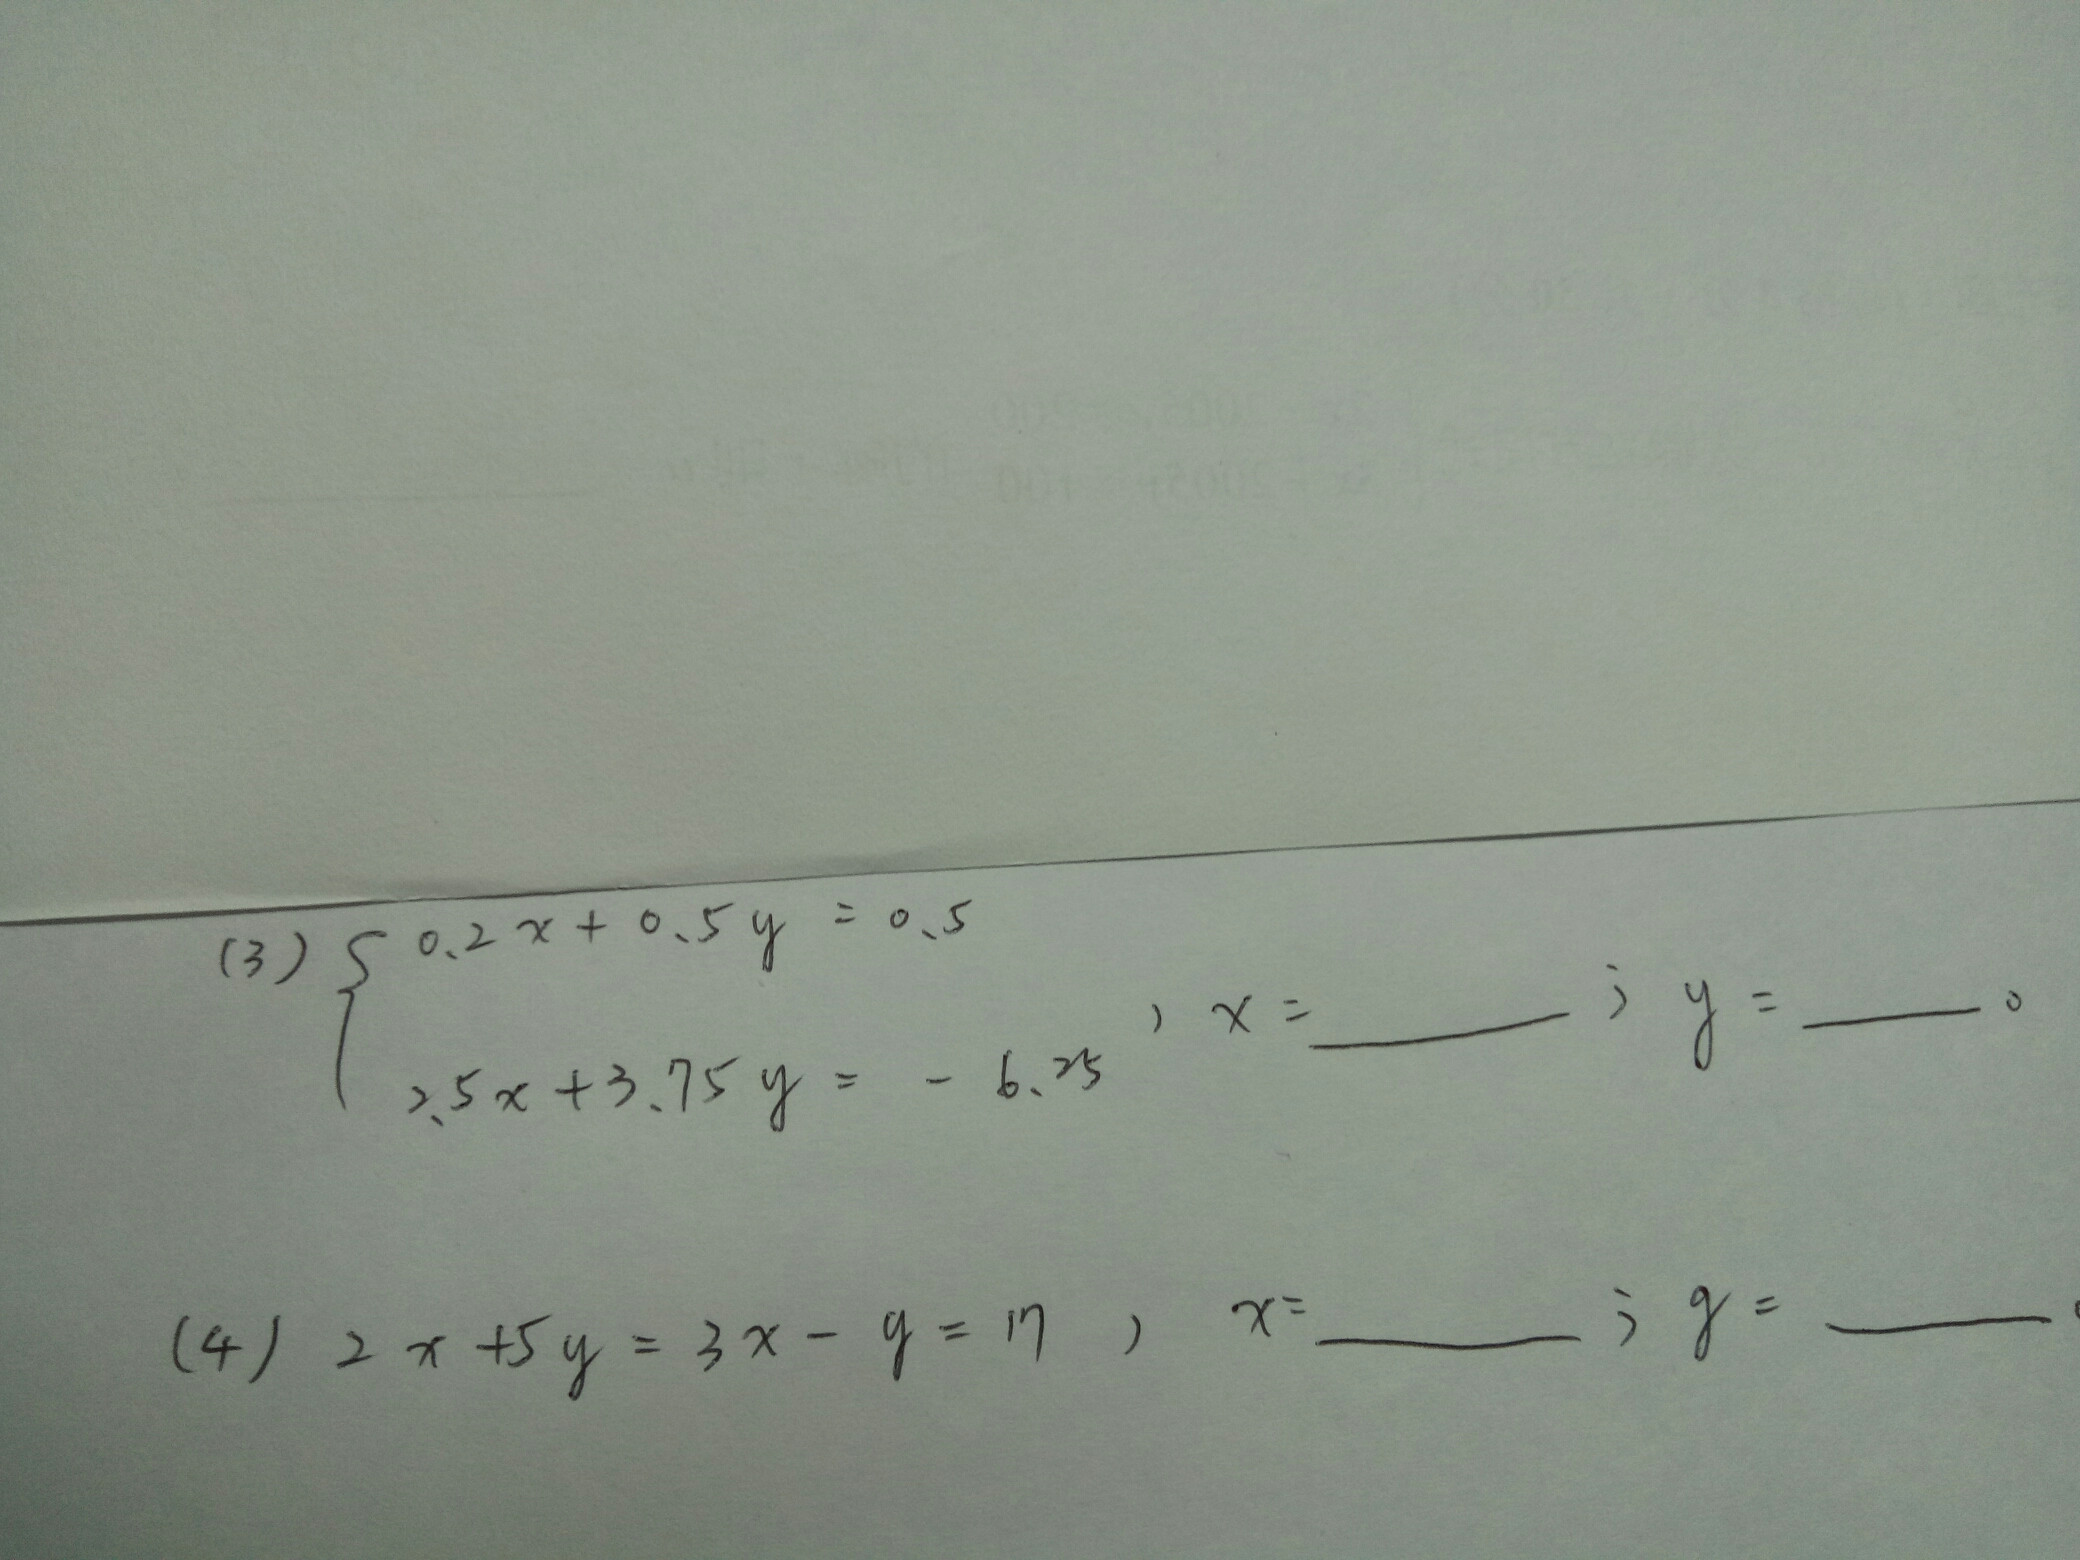 (3) { 0.2x + 0.5y = 0.5
2.5x + 3.75y = -6.25 , x = ____ ; y = ____ 。
(4) 2x + 5y = 3x - y = 17 , x = ____ ; y = ____ 。